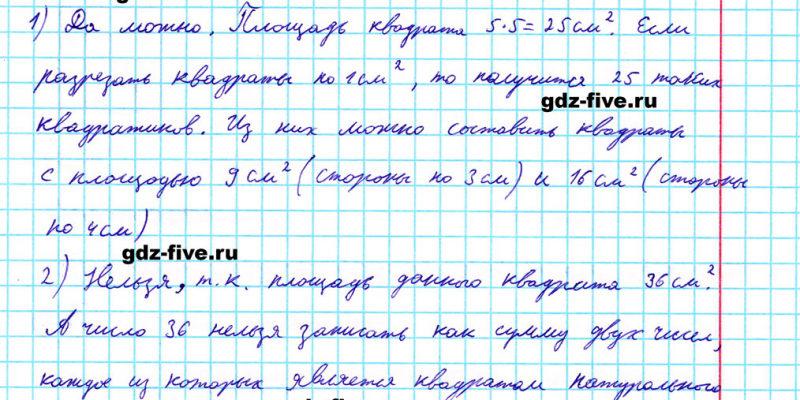 1) Да можно. Площадь квадрата 5·5=25см². Если
разрезать квадраты по 1см², то получится 25 таких
gdz-five.ru
квадратиков. Из них можно составить квадраты
с площадью 9см² (стороны по 3см) и 16см² (стороны
по 4см)
gdz-five.ru
2) Нельзя, т.к. площадь данного квадрата 36см².
А число 36 нельзя записать как сумму двух чисел,
каждое из которых является квадратом натурального